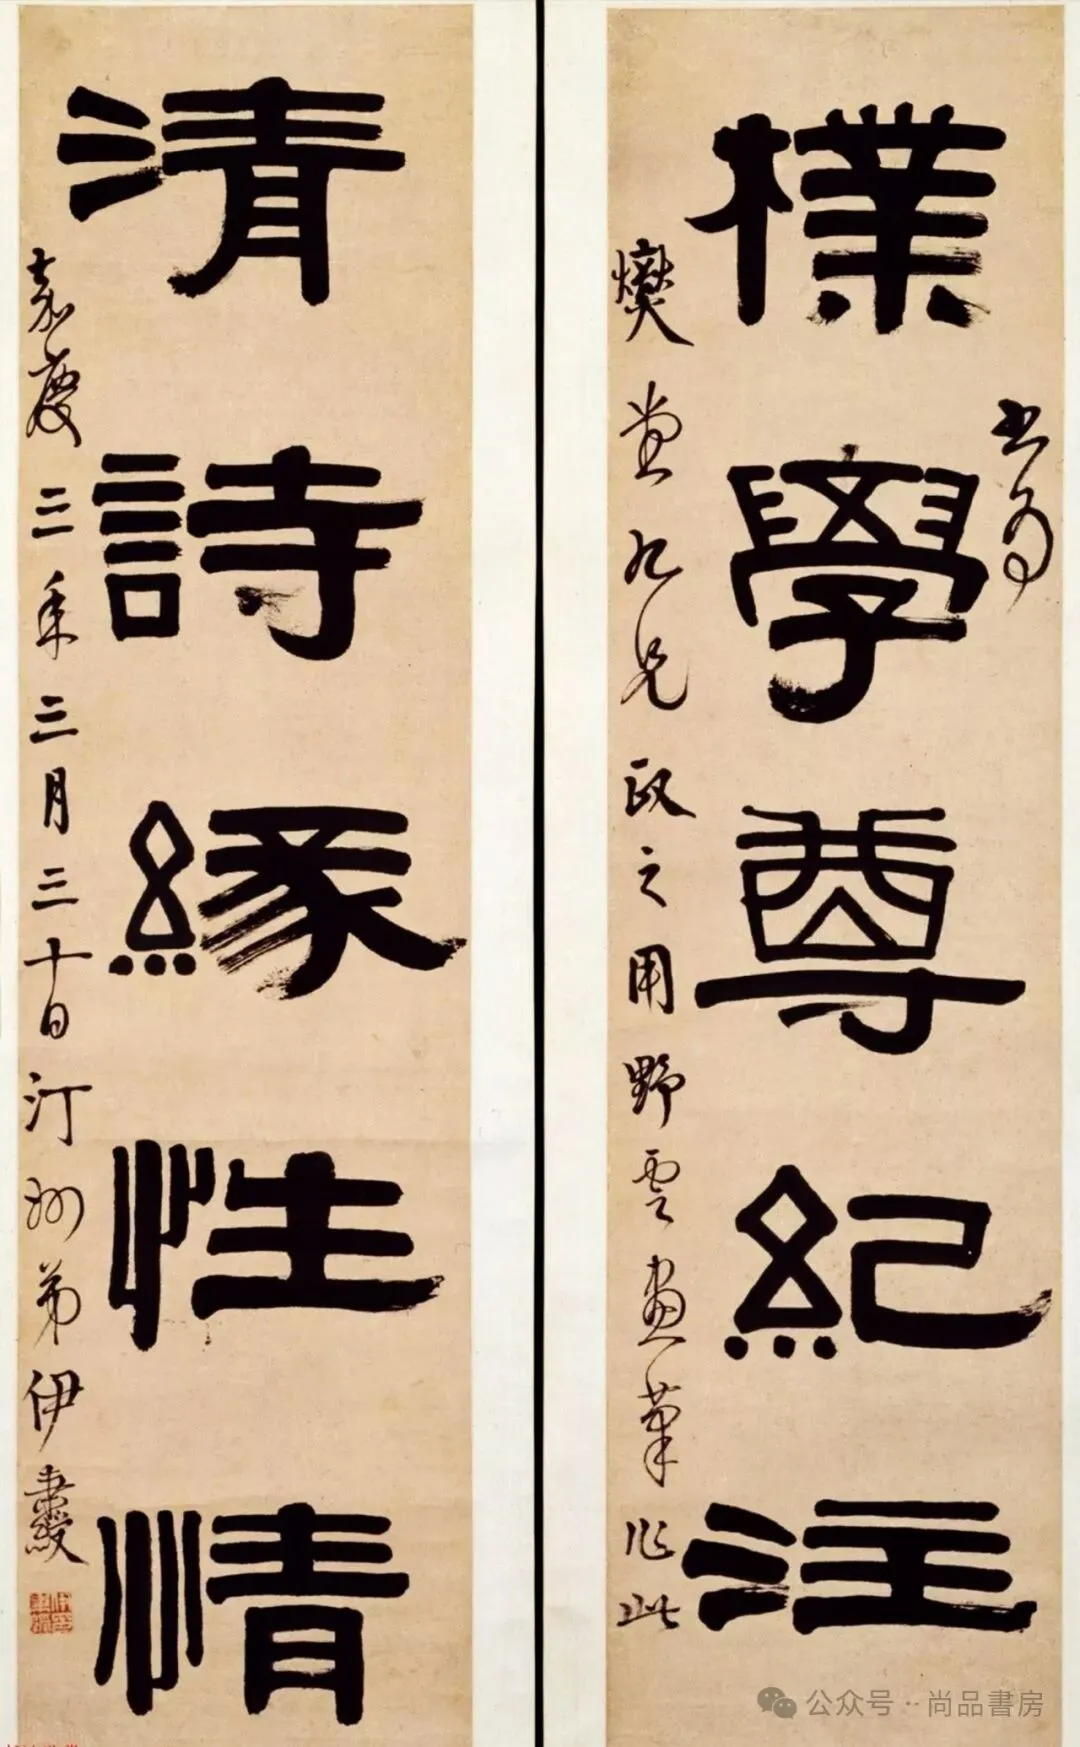 樸學尊紀注
書為
爕堂九兄政之用野雲畫筆作此
清詩緣性情
嘉慶三年三月三十日汀州弟伊秉綬
公众号··尚品書房